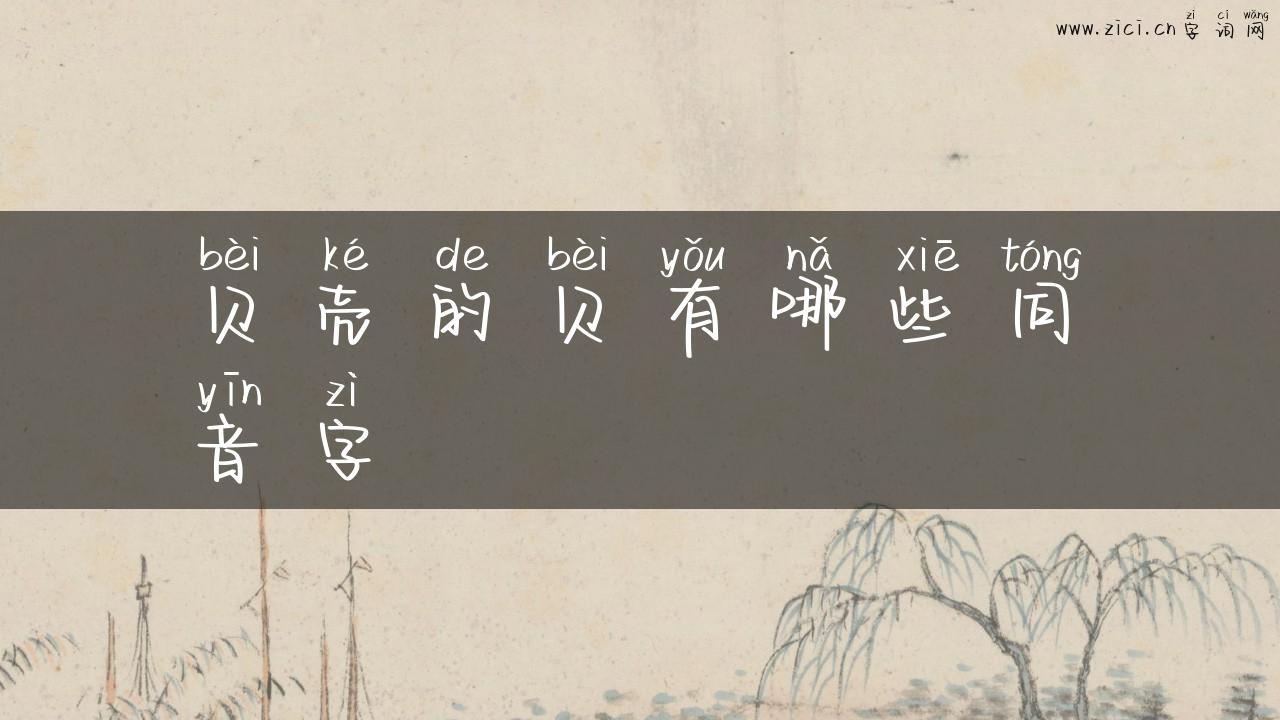 zì cí wǎng
www.zici.cn 字词网
bèi ké de bèi yǒu nǎ xiē tóng
贝壳的贝有哪些同
yīn zì
音字